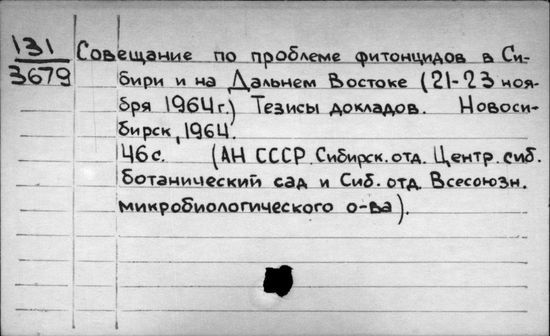 131
3679
Совещание по проблеме фитонцидов в Си-
бири и на Дальнем Востоке (21-23 ноя-
бря 1964г.) Тезисы докладов. Новоси-
бирск, 1964.
46с. (АН СССР. Сибирск. отд. Центр. сиб.
ботанический сад и Сиб. отд. Всесоюзн.
микробиологического о-ва).